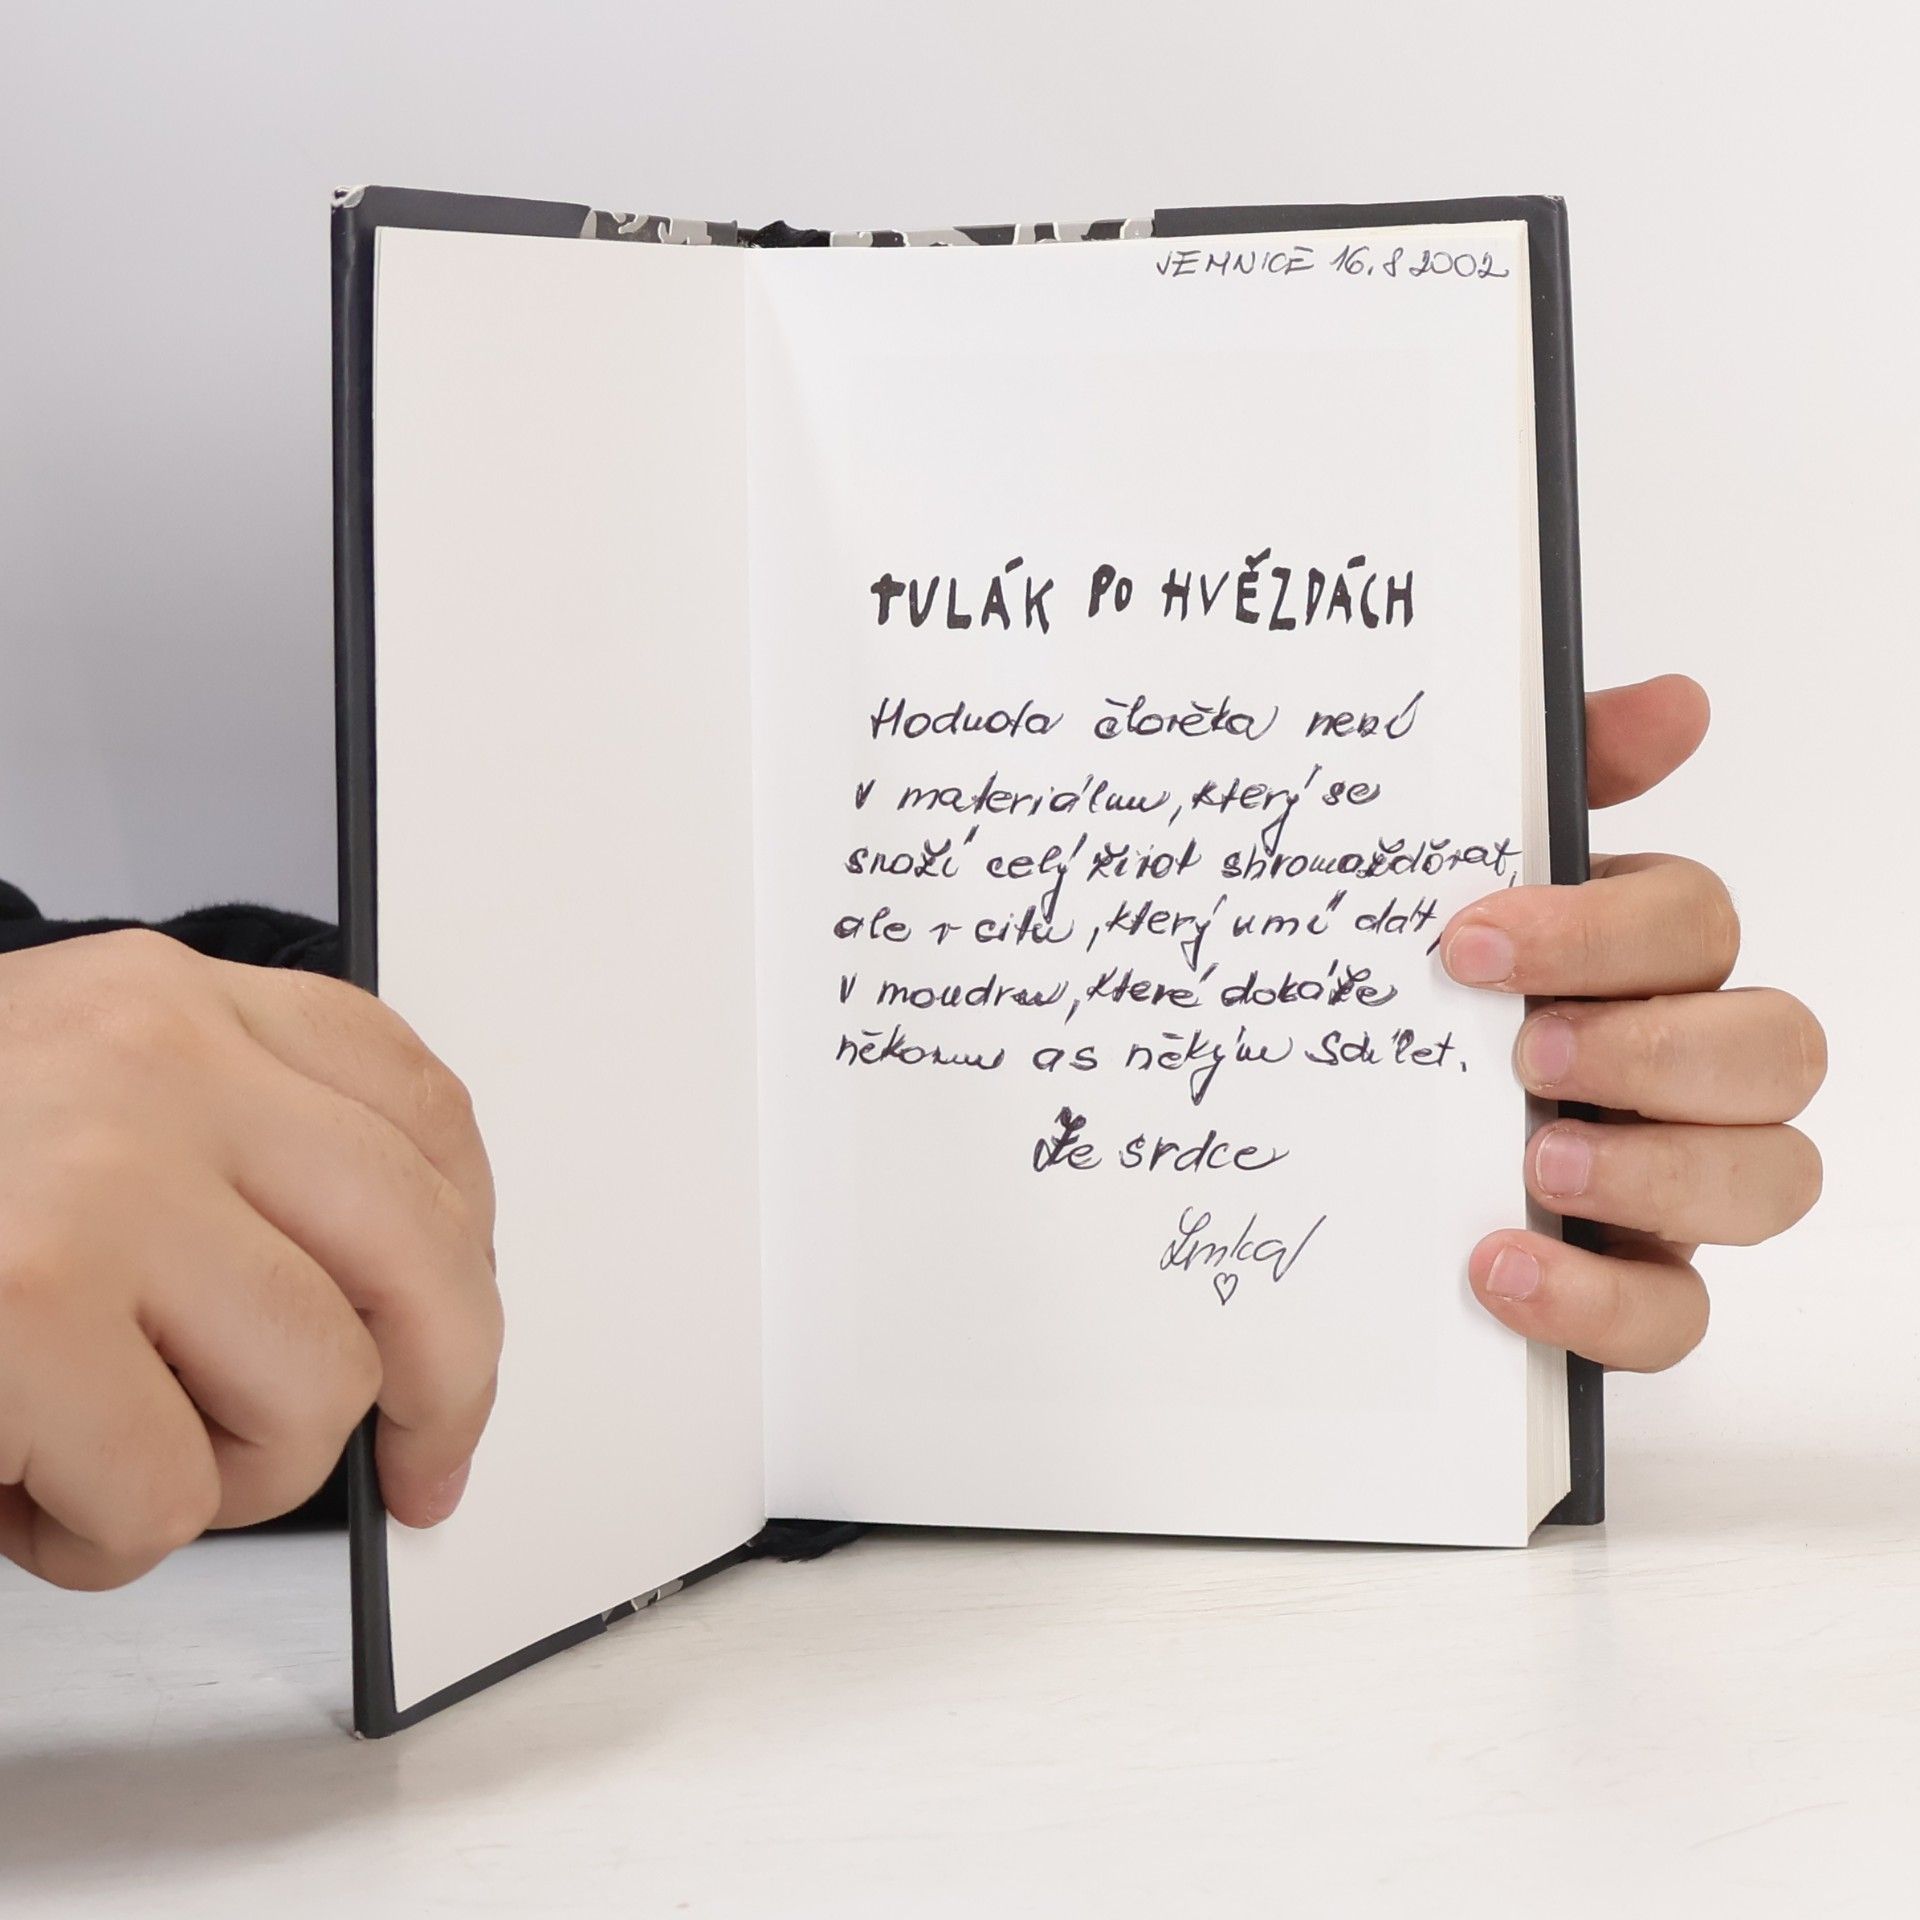 JEMNICE 16.8 2002
TULÁK PO HVĚZDÁCH
Hodnota člověka není
v materiálnu, který se
snaží celý život shromažďovat,
ale v citu, který umí dát,
v moudru, které dokáže
někomu a s někým sdílet.
Ze srdce